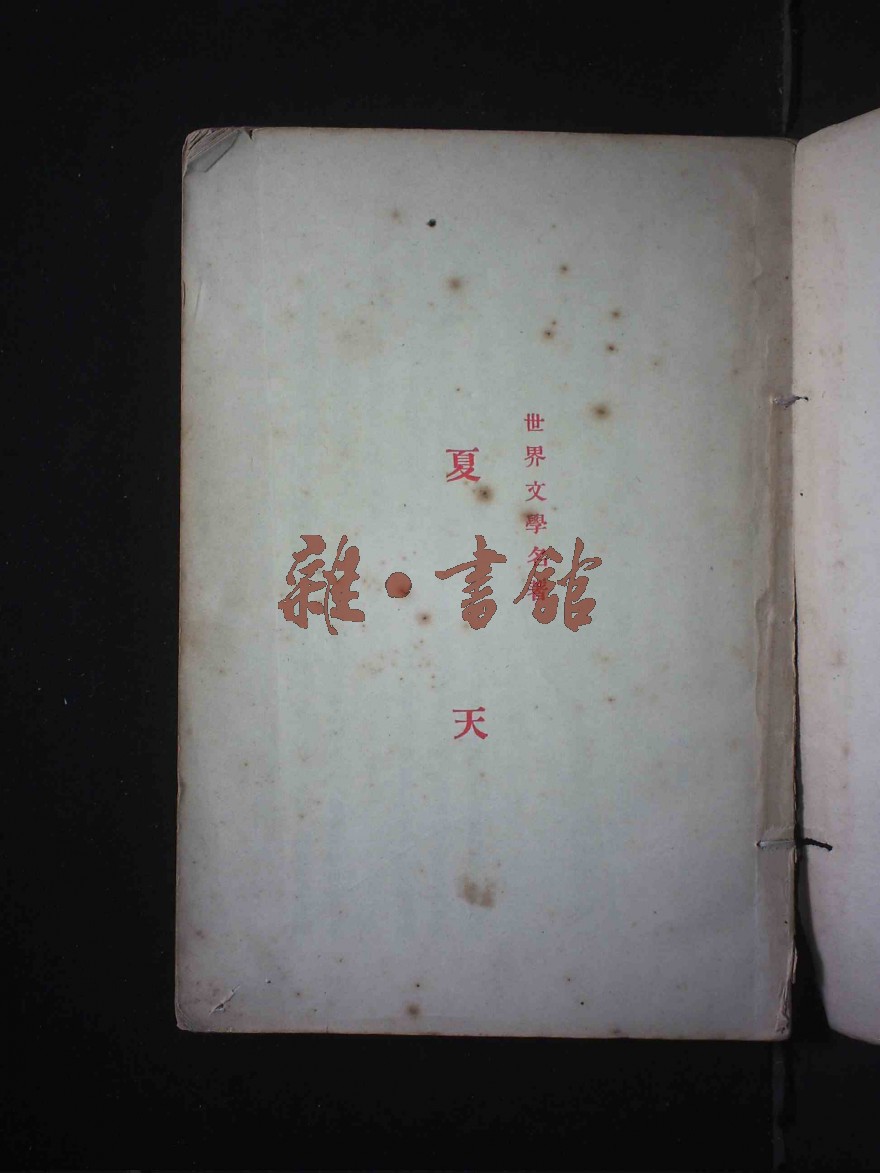 世界文學名著
夏天
雜·書館